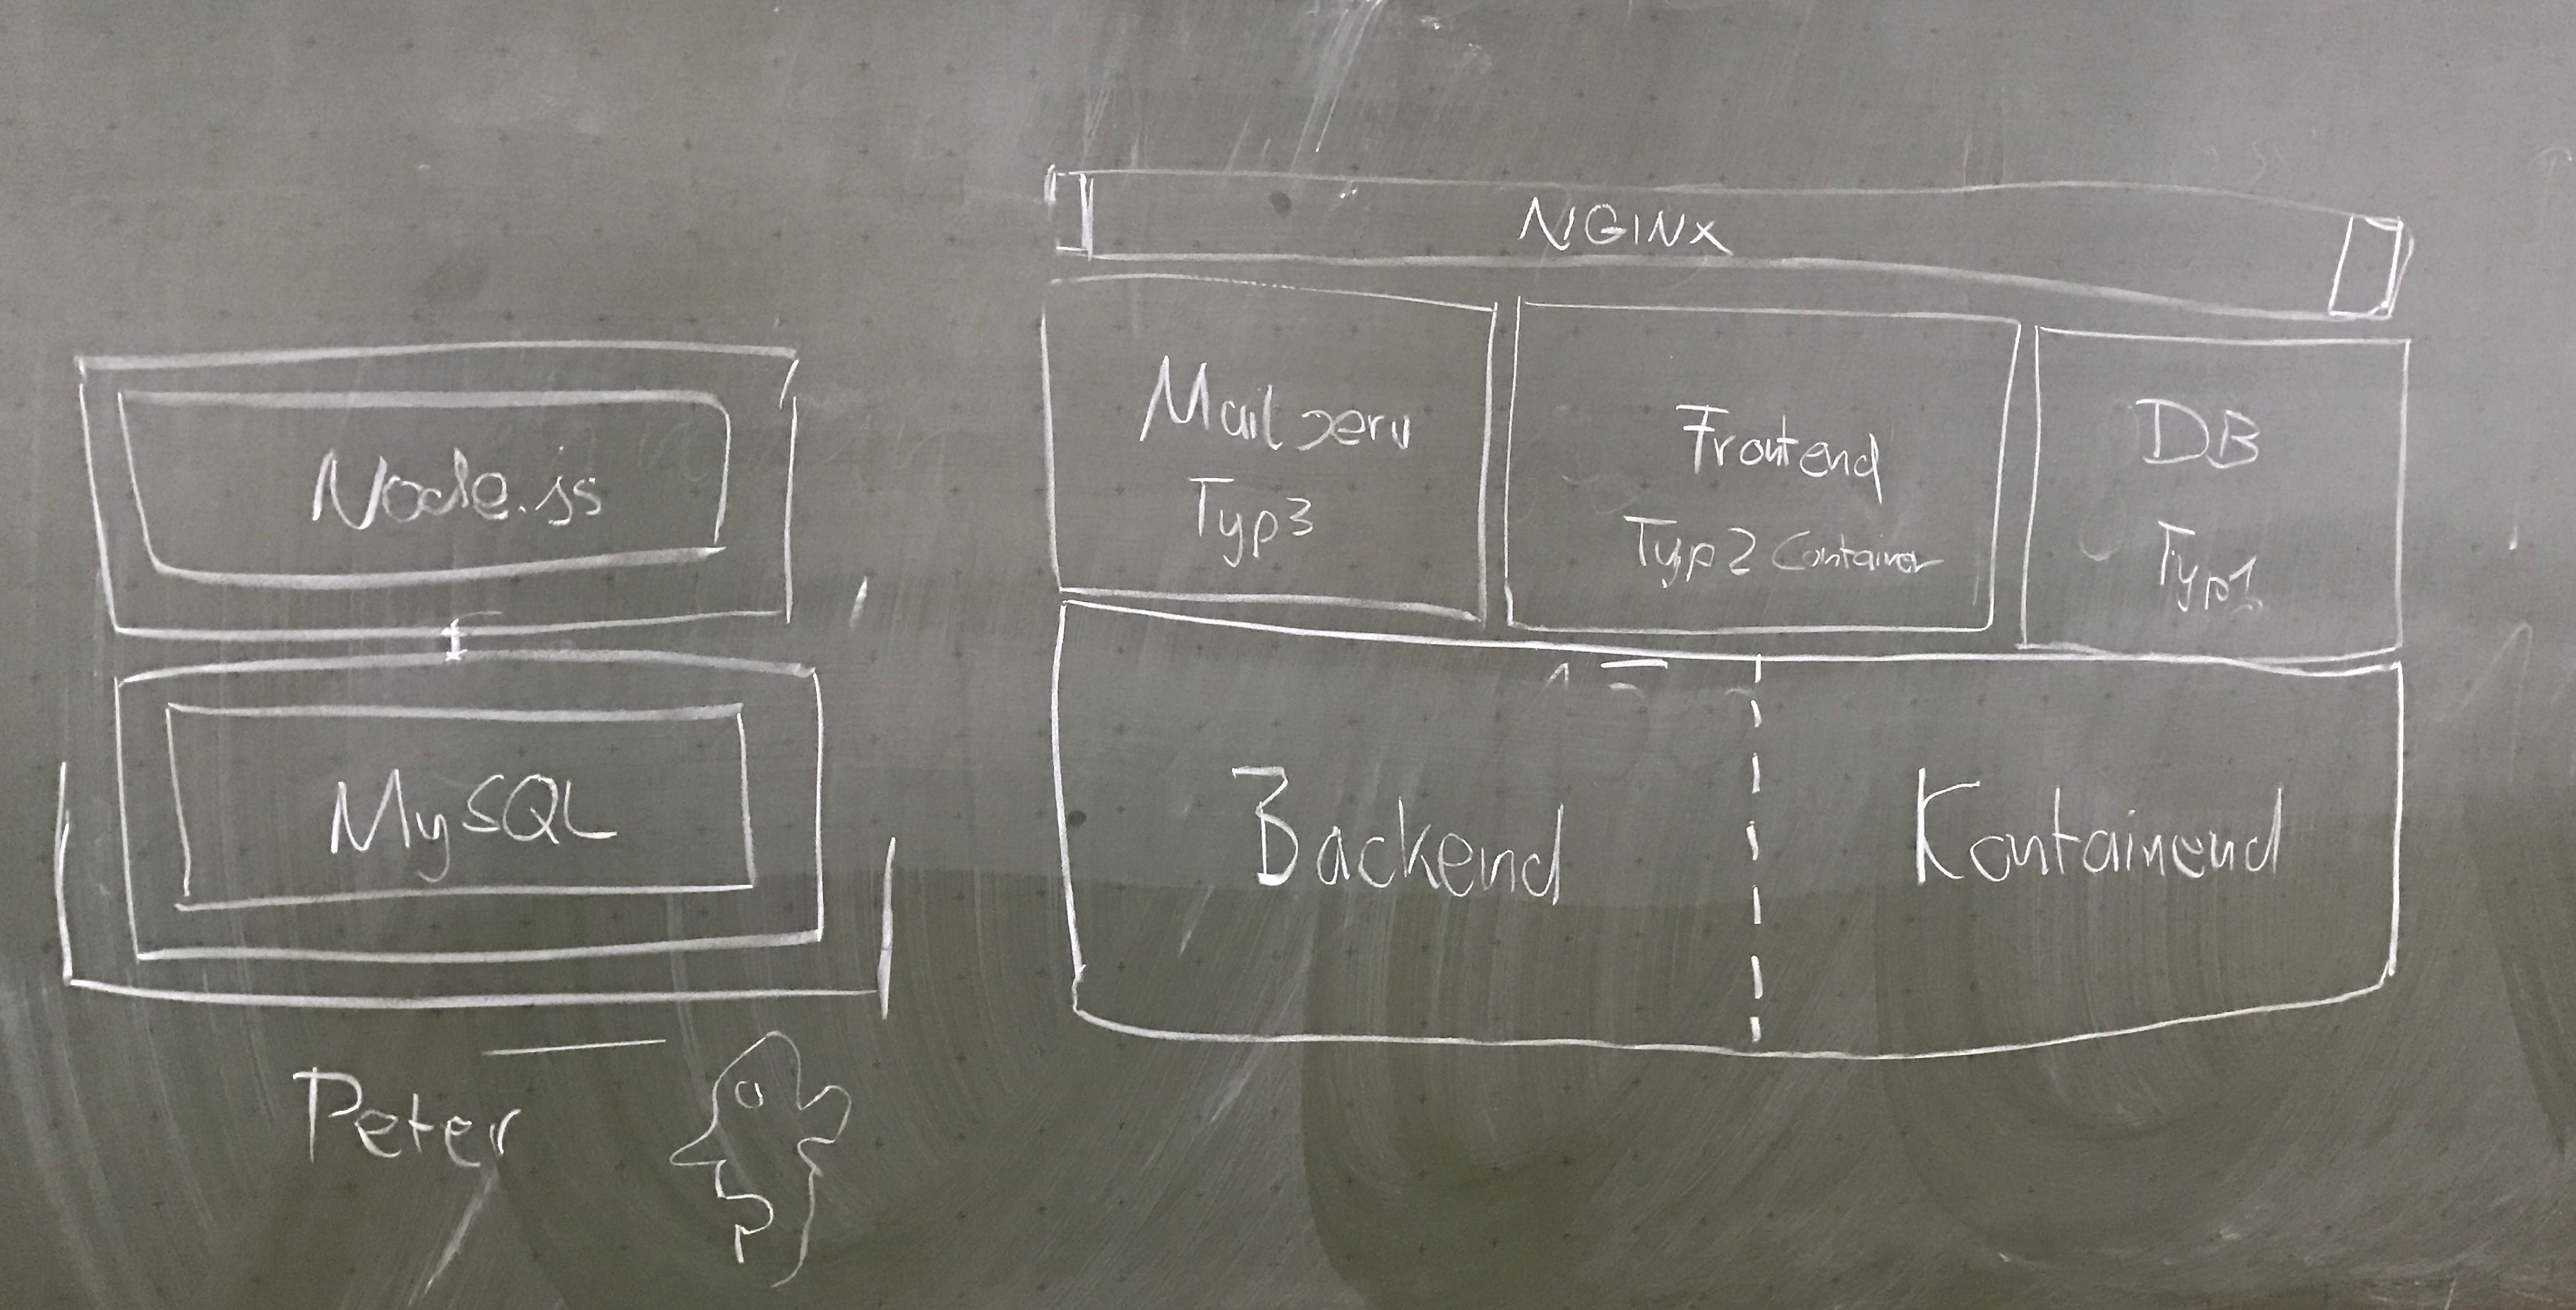 Node.js
MySQL
Peter
NGINX
Mailserv
Typ3
Frontend
Typ2 Container
DB
Typ1
Backend
Kontainend